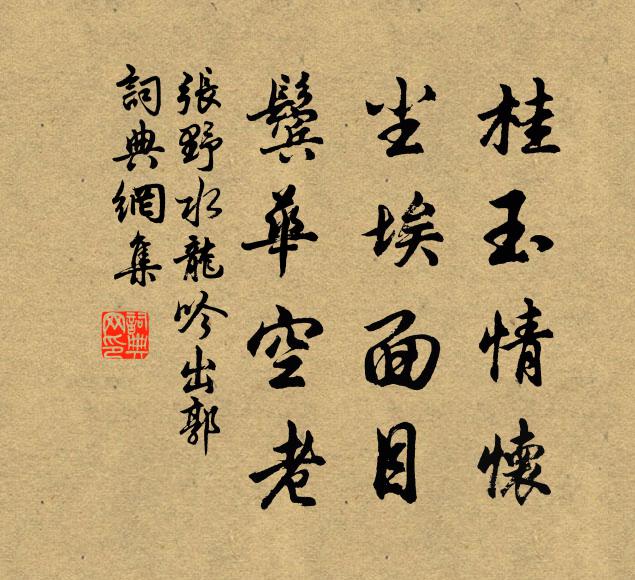 桂玉情懷
尘埃面目
鬢華空老
張野水龍吟出郭
詞典網集
詞典网印